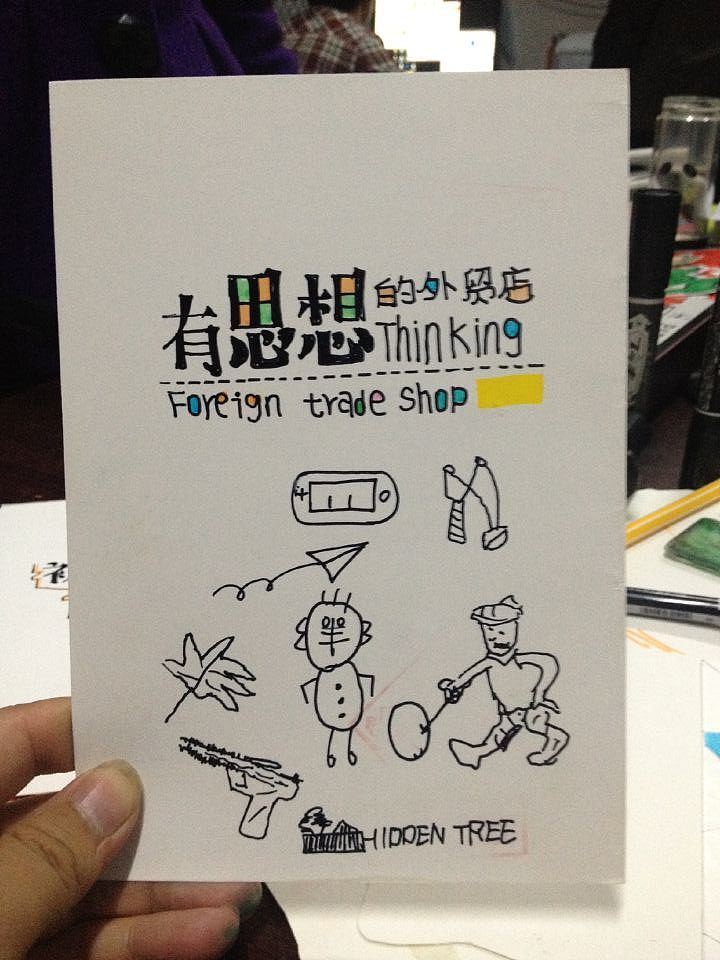 有思想的外贸店
Thinking
Foreign trade shop
HIDDEN TREE